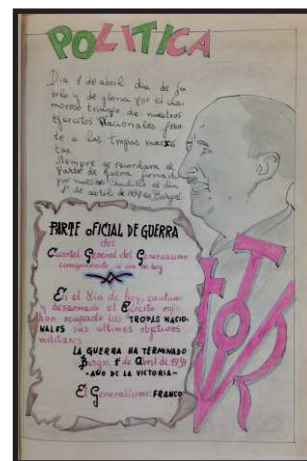 POLITICA
Dia 1 de abril dia de jú
bilo y de gloria por el cla
moroso triunfo de nuestros
Ejercitos Nacionales fren
te a las tropas marxis
tas.
Siempre se recordara el
Parte de Guerra firmado
por nuestro Caudillo el dia
1º de abril de 1939 en Burgos.
PARTE OFICIAL DE GUERRA
del
Cuartel General del Generalisimo
correspondiente al dia de hoy
En el dia de hoy, cautivo
y desarmado el Ejército rojo
han ocupado las TROPAS NACIO-
NALES sus ultimos objetivos
militares
LA GUERRA HA TERMINADO
Burgos 1º de Abril de 1939
-AÑO DE LA VICTORIA-
El Generalisimo: FRANCO